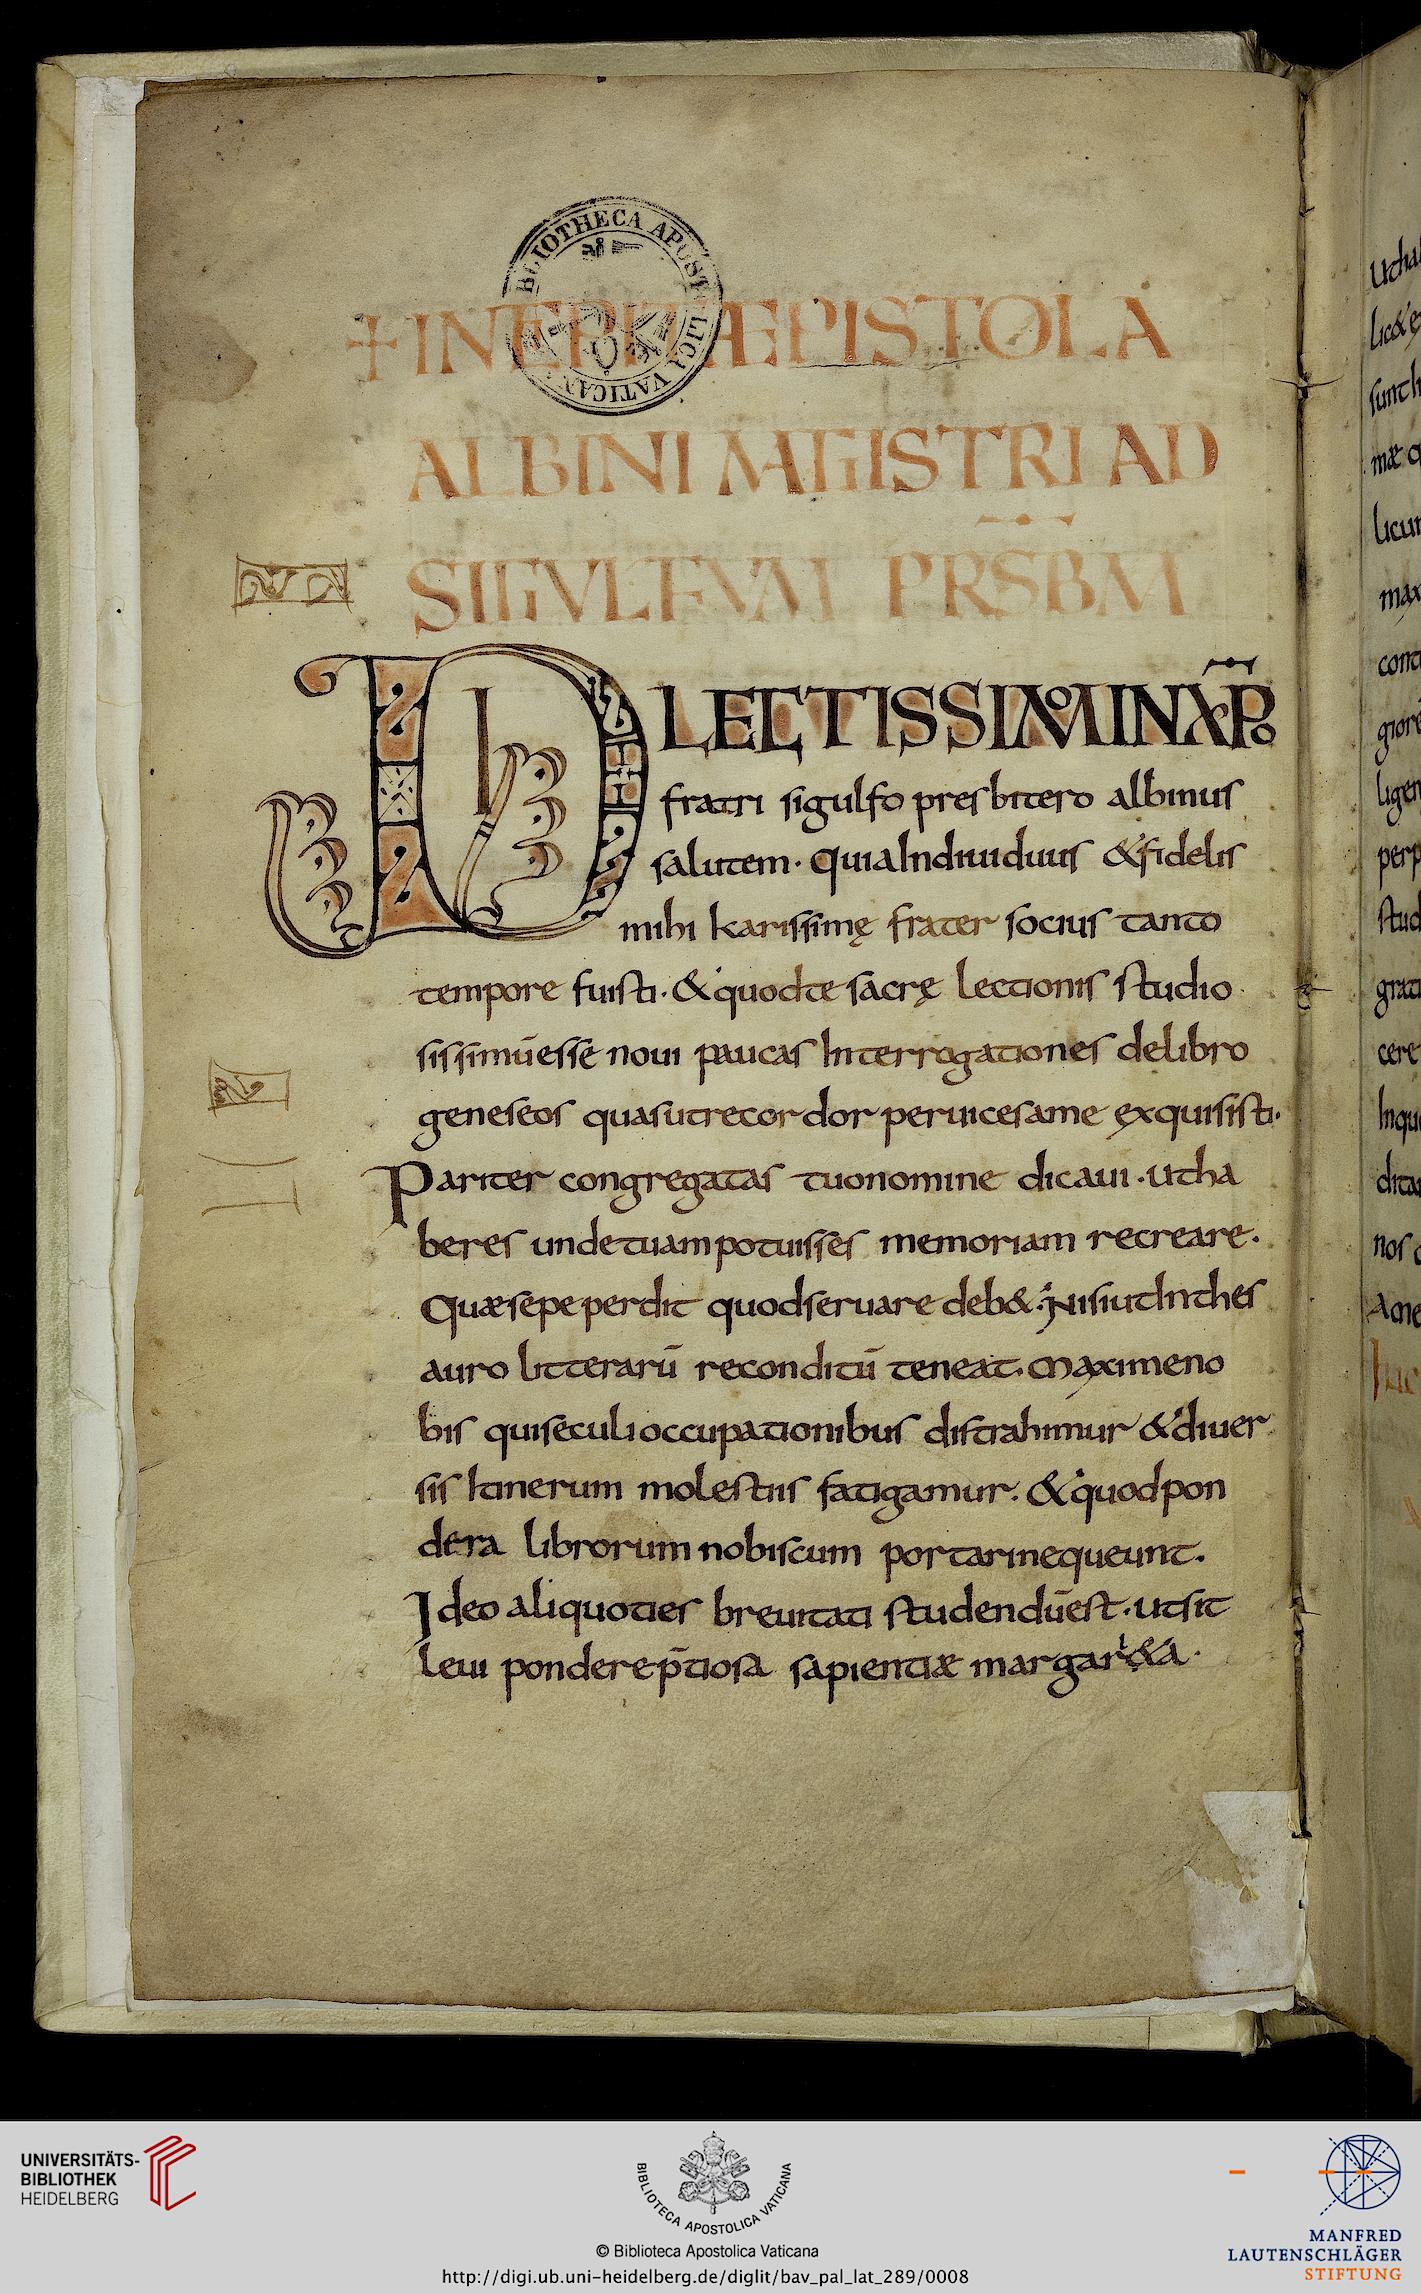 BIBLIOTHECA APOSTOLICA VATICANA
+ INCIPIT ÆPISTOLA
ALBINI MAGISTRI AD
SIGVLFVM PRSB̅M
DILECTISSIMO IN XP̅O
fratri sigulfo presbitero albinus
salutem · quia Indiuiduus & fidelis
mihi karissimę frater socius tanto
tempore fuisti · & quod te sacrę lectionis studio
sissimū esse noui paucas Interrogationes de libro
geneseos quas ut recordor peruices a me exquisisti ·
Pariter congregatas tuo nomine dicaui · ut ha
beres unde tuam potuisses memoriam recreare ·
Quæ sepe perdit quod seruare deb& · Nisi ut In thes
auro litterarū reconditū teneat · Maxime no
bis qui seculi occupationibus distrahimur & diuer
sis Itinerum molestiis fatigamur · & quod pon
dera librorum nobiscum portari nequeunt ·
Ideo aliquoties breuitati studendū est · ut sit
leui pondere p̄tiosa sapientiæ margari&a ·
UNIVERSITÄTS-
BIBLIOTHEK
HEIDELBERG
BIBLIOTECA APOSTOLICA VATICANA
© Biblioteca Apostolica Vaticana
http://digi.ub.uni-heidelberg.de/diglit/bav_pal_lat_289/0008
MANFRED
LAUTENSCHLÄGER
STIFTUNG